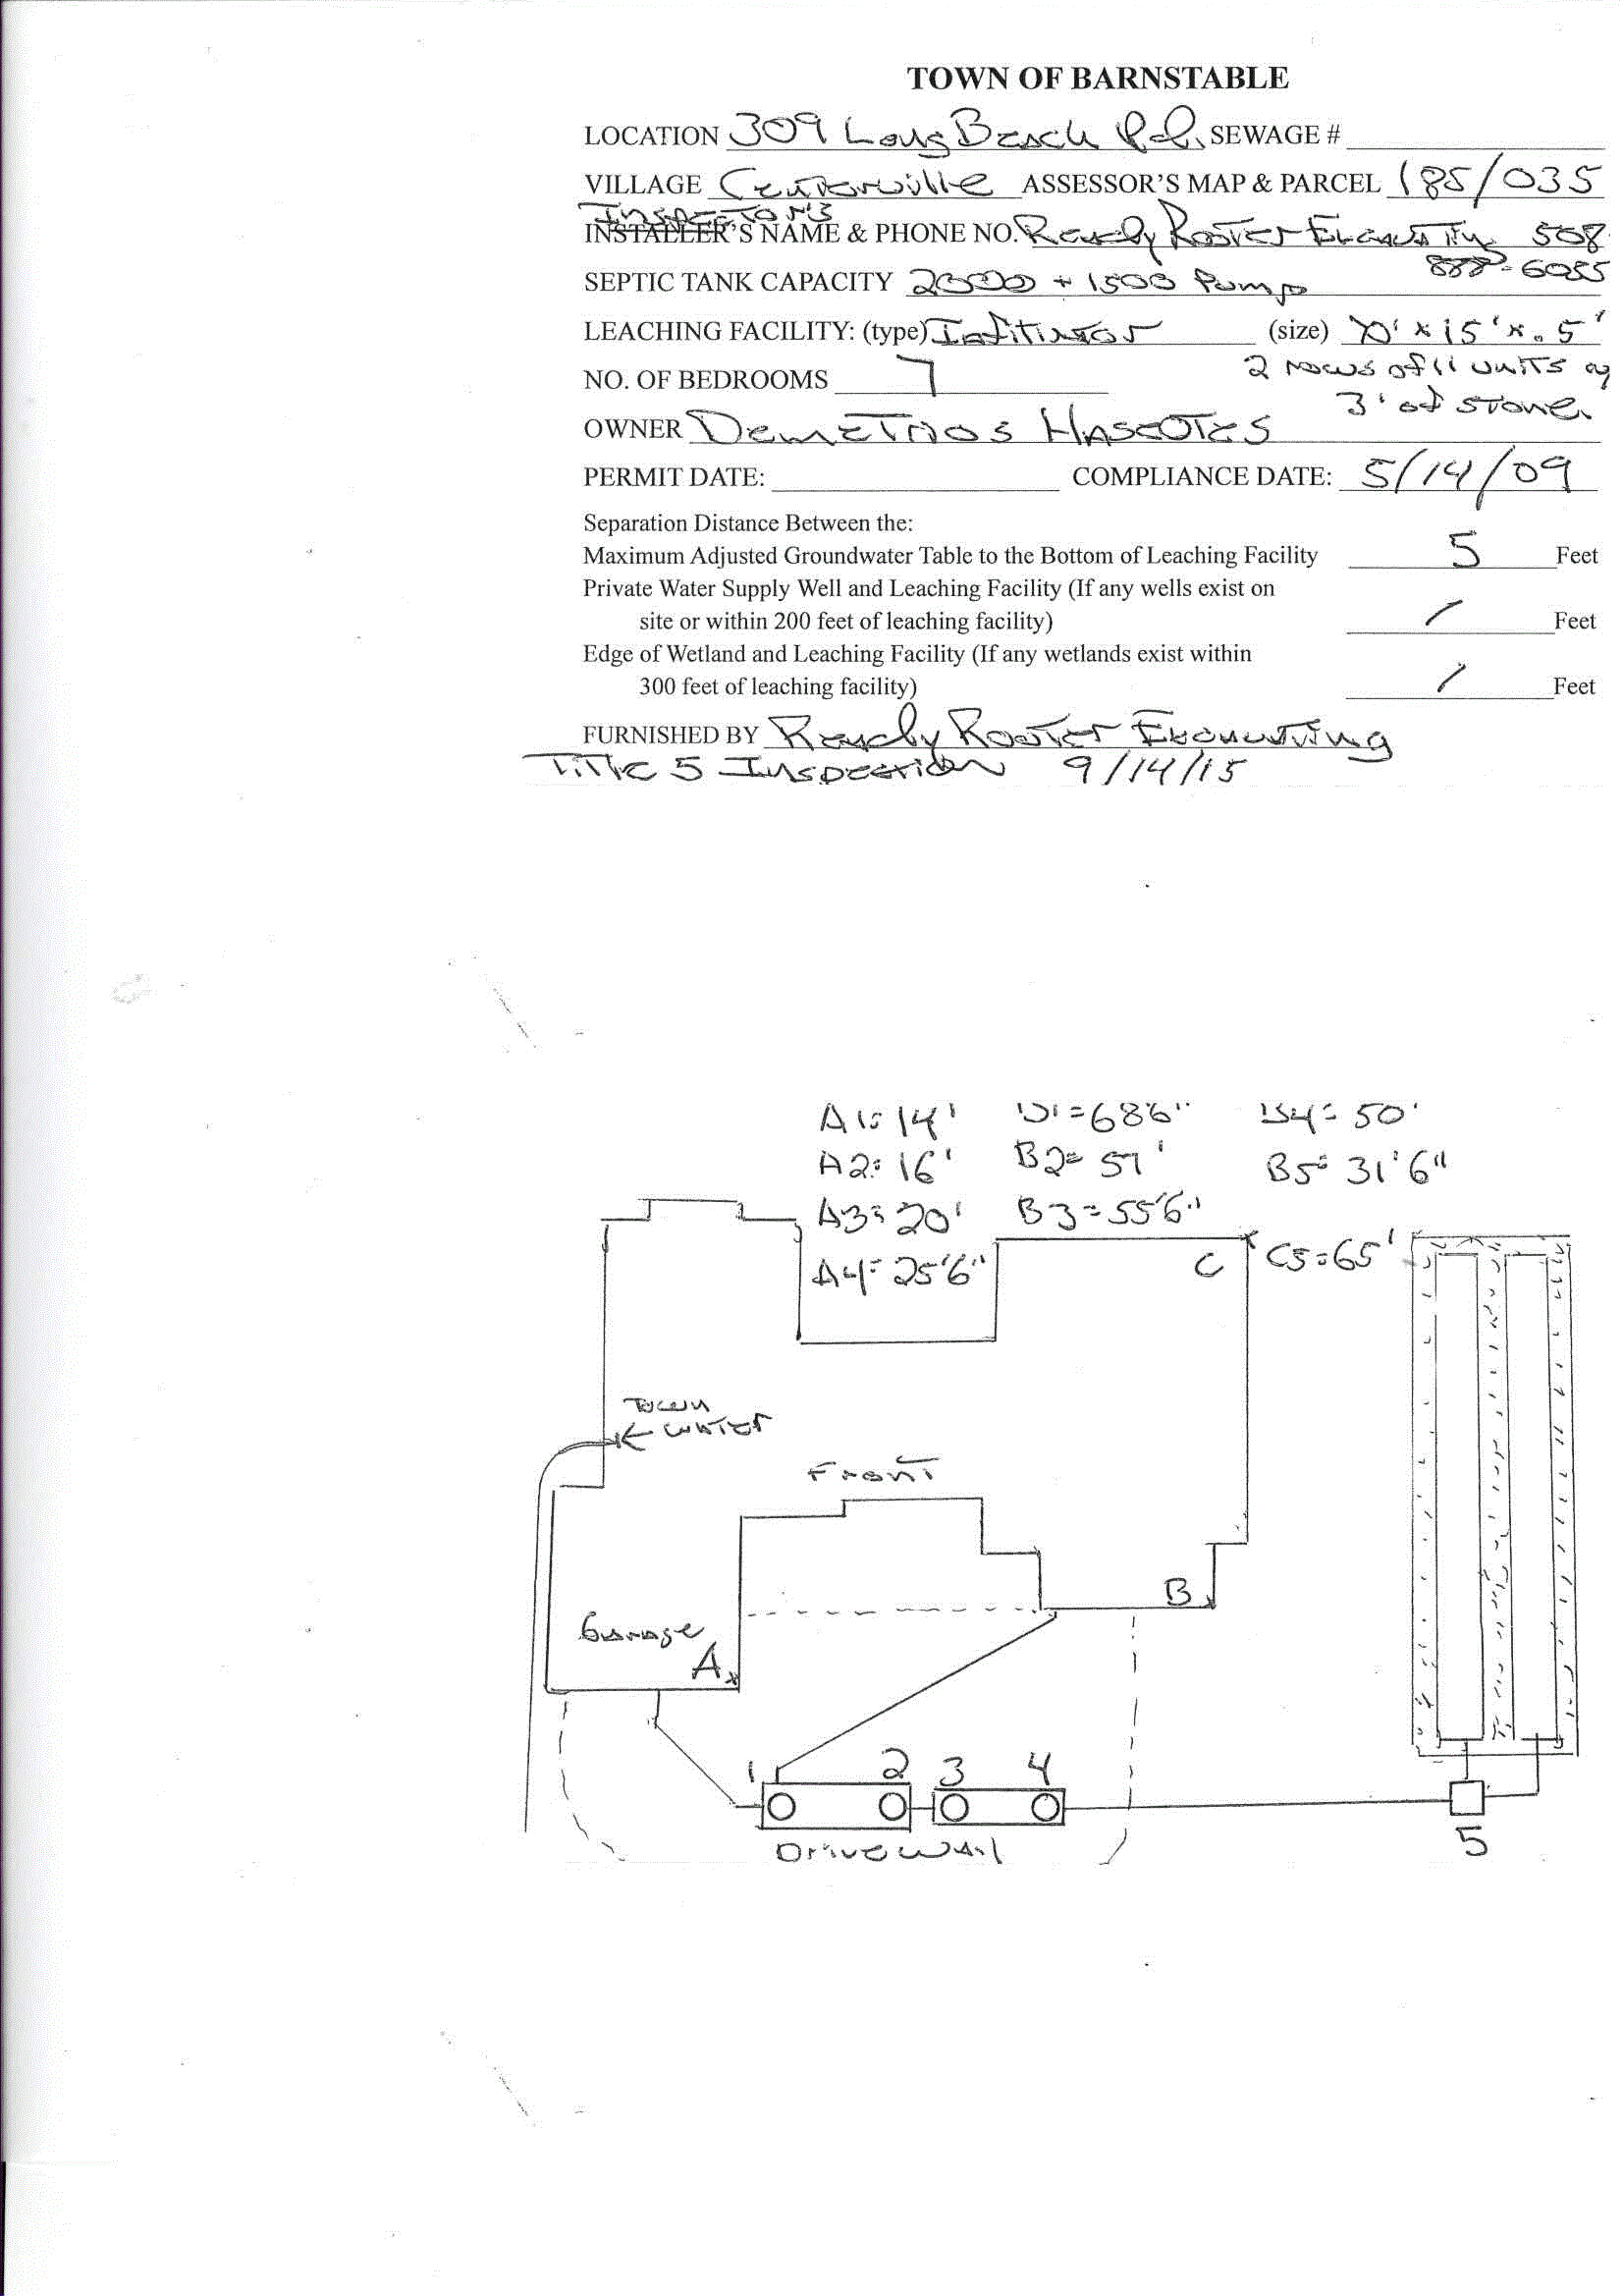 TOWN OF BARNSTABLE
LOCATION 309 Long Beach Rd. SEWAGE #
VILLAGE Centerville ASSESSOR'S MAP & PARCEL 185/035
Inspector's
INSTALLER'S NAME & PHONE NO. Ready Rooter 508
888-6055
SEPTIC TANK CAPACITY 2000 + 1500 Pump
LEACHING FACILITY: (type) (size) x 15' x .5'
2 rows of 11 units
NO. OF BEDROOMS 7
3' of stone
OWNER Demetrios Hascotes
PERMIT DATE: COMPLIANCE DATE: 5/14/09
Separation Distance Between the:
Maximum Adjusted Groundwater Table to the Bottom of Leaching Facility 5 Feet
Private Water Supply Well and Leaching Facility (If any wells exist on
site or within 200 feet of leaching facility) / Feet
Edge of Wetland and Leaching Facility (If any wetlands exist within
300 feet of leaching facility) / Feet
FURNISHED BY Ready Rooter Excavating
Title 5 Inspection 9/14/15
A1= 14' B1=68'6" B4= 50'
A2= 16' B2= 57' B5= 31'6"
A3= 20' B3= 55'6"
A4= 25'6" C C5=65'
Town
Water
Front
B
Garage
A
1 2 3 4
Driveway
5